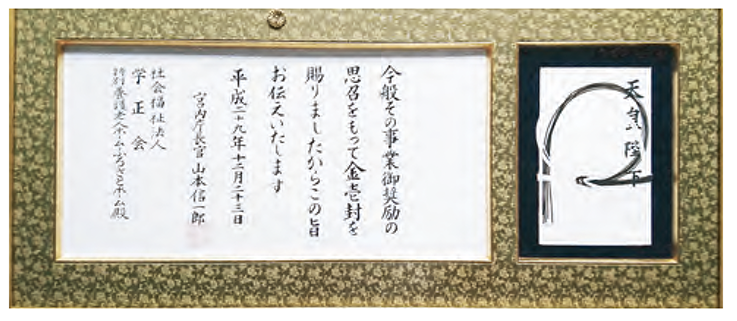 天皇陛下
今般その事業御奨励の
思召をもって金壱封を
賜りましたからこの旨
お伝えいたします
平成二十九年十二月二十三日
宮内庁長官 山本信一郎
社会福祉法人
学正会
特別養護老人ホーム
ホーム殿